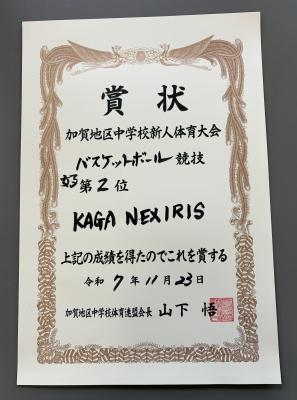 賞状
加賀地区中学校新人体育大会
バスケットボール競技
女子第2位
KAGA NEXIRIS
上記の成績を得たのでこれを賞する
令和7年11月23日
加賀地区中学校体育連盟会長 山下 悟